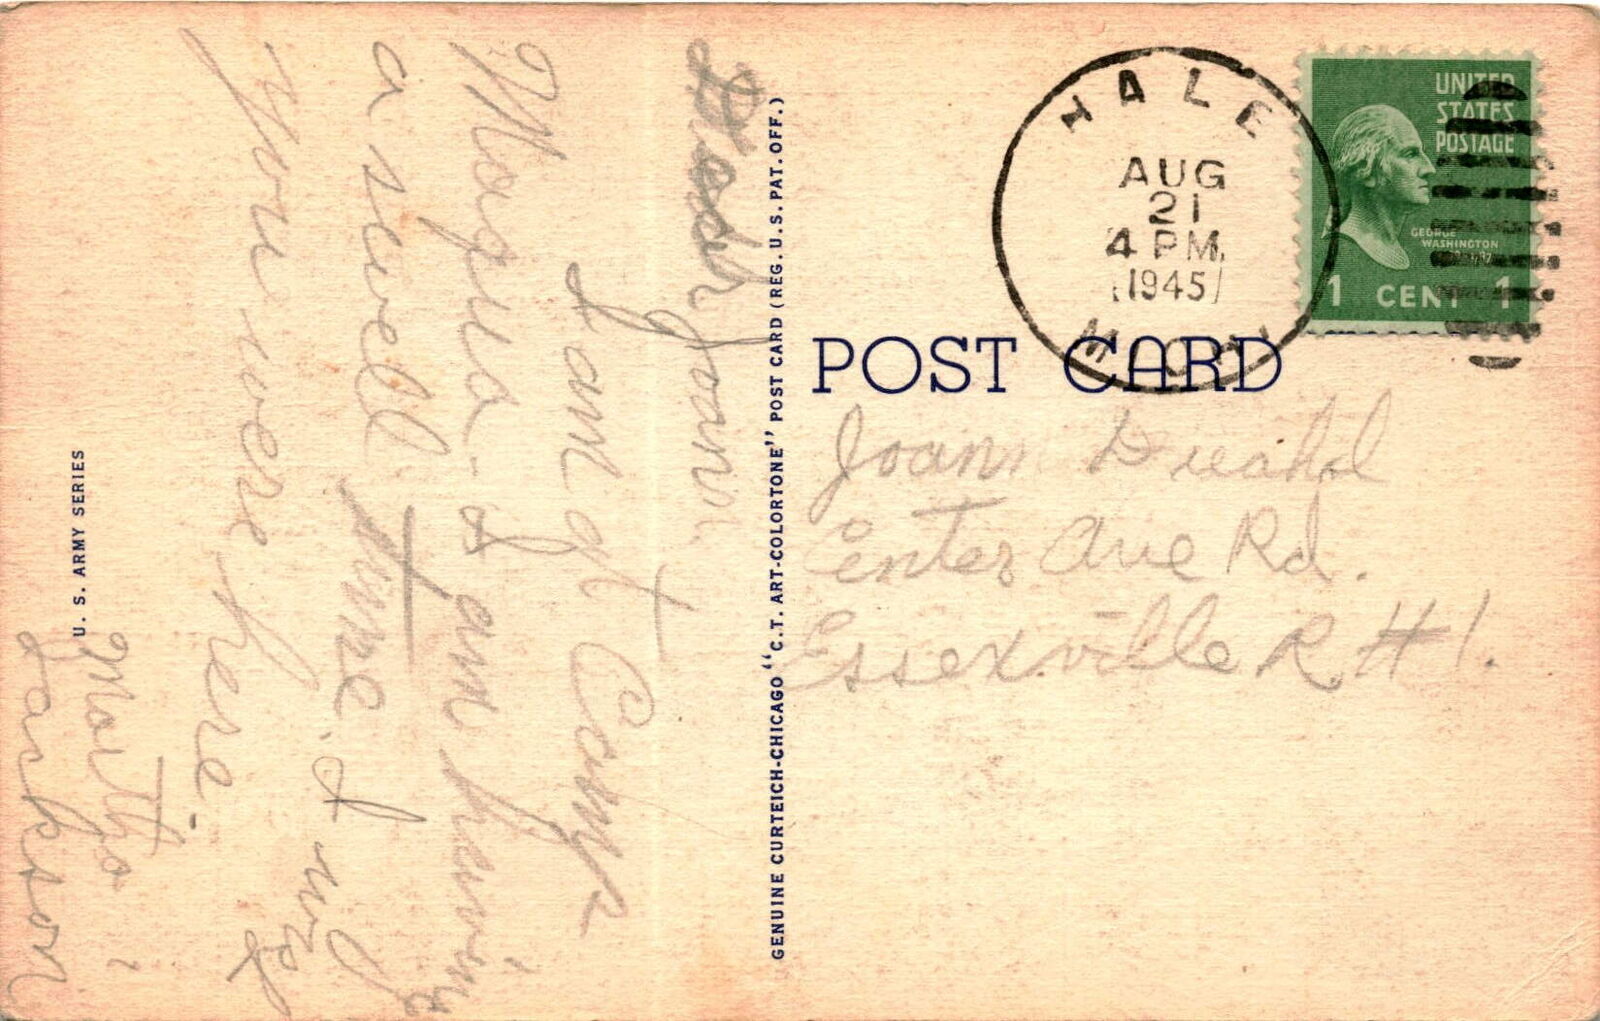 Dear Joann.
I am at Camp
Maqua & am having
a swell time. I wish
you were here.
Martha
Jackson
U. S. ARMY SERIES
GENUINE CURTEICH-CHICAGO "C.T. ART-COLORTONE" POST CARD (REG. U.S. PAT. OFF.)
HALE
AUG
21
4 PM
1945
MICH
UNITED
STATES
POSTAGE
GEORGE
WASHINGTON
1 CENT 1
POST CARD
Joann
Center Ave Rd.
Essexville R #1.